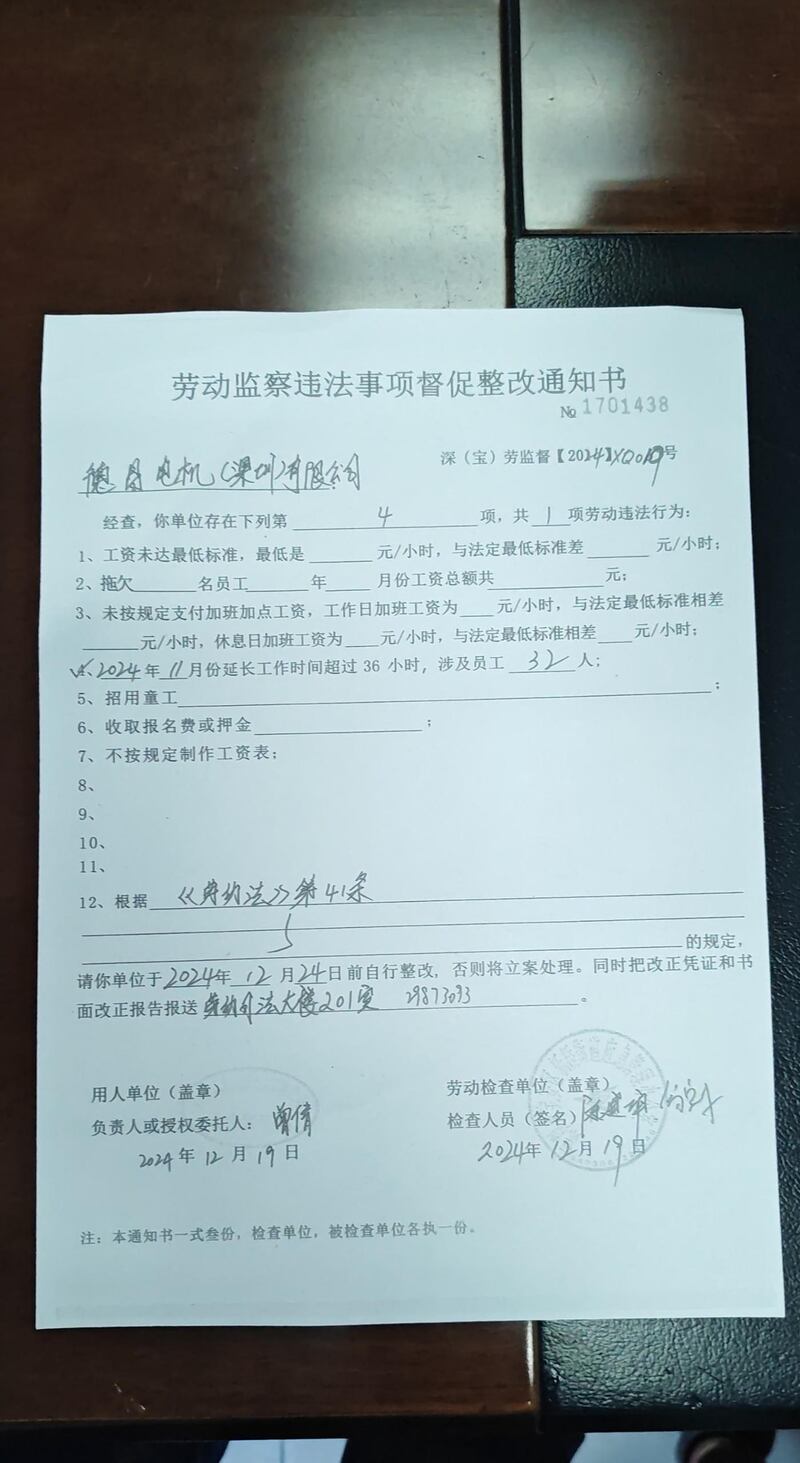 劳动监察违法事项督促整改通知书
№ 1701438
深（宝）劳监督【2024】XQ019号
德昌电机（深圳）有限公司
经查，你单位存在下列第 4 项，共 1 项劳动违法行为：
1、工资未达最低标准，最低是 元/小时，与法定最低标准差 元/小时；
2、拖欠 名员工 年 月份工资总额共 元；
3、未按规定支付加班加点工资，工作日加班工资为 元/小时，与法定最低标准相差
元/小时，休息日加班工资为 元/小时，与法定最低标准相差 元/小时；
✓4、2024年 11月份延长工作时间超过 36 小时，涉及员工 32 人；
5、招用童工 ；
6、收取报名费或押金 ；
7、不按规定制作工资表；
8、
9、
10、
11、
12、根据 《劳动法》第41条
的规定，
请你单位于2024年 12 月24日前自行整改，否则将立案处理。同时把改正凭证和书
面改正报告报送 劳动执法大楼201室 29873093 。
用人单位（盖章）
负责人或授权委托人：曾倩
2024 年 12 月 19 日
劳动检查单位（盖章）
检查人员（签名）
2024年 12月 19日
注：本通知书一式叁份，检查单位，被检查单位各执一份。